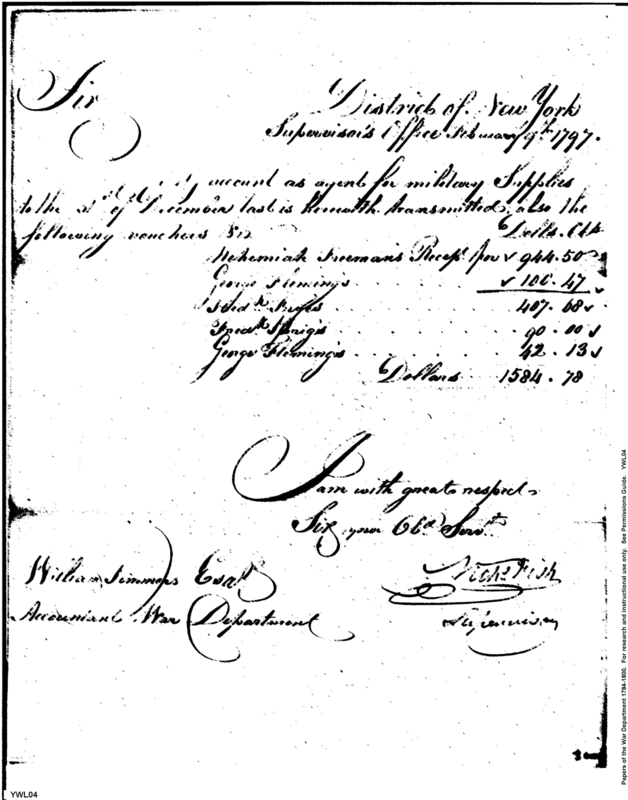 Sir
District of New York
Supervisor's Office February 9th 1797.
account as agent for military Supplies
to the 31st of December last is herewith transmitted, also the
following vouchers Viz Dolls. Cts
Nehemiah Freeman's Recept for 944.50
George Fleming's 100.47
407.68
Fredk 90.00
George Fleming's 42.13
Dollars 1584.78
I am with great respect
Sir your Obd. Servt.
William Simmons Esqr. Nichs Fish
Accountant War Department Supervisor
Papers of the War Department 1784-1800. For research and instructional use only. See Permissions Guide. YWL04
YWL04